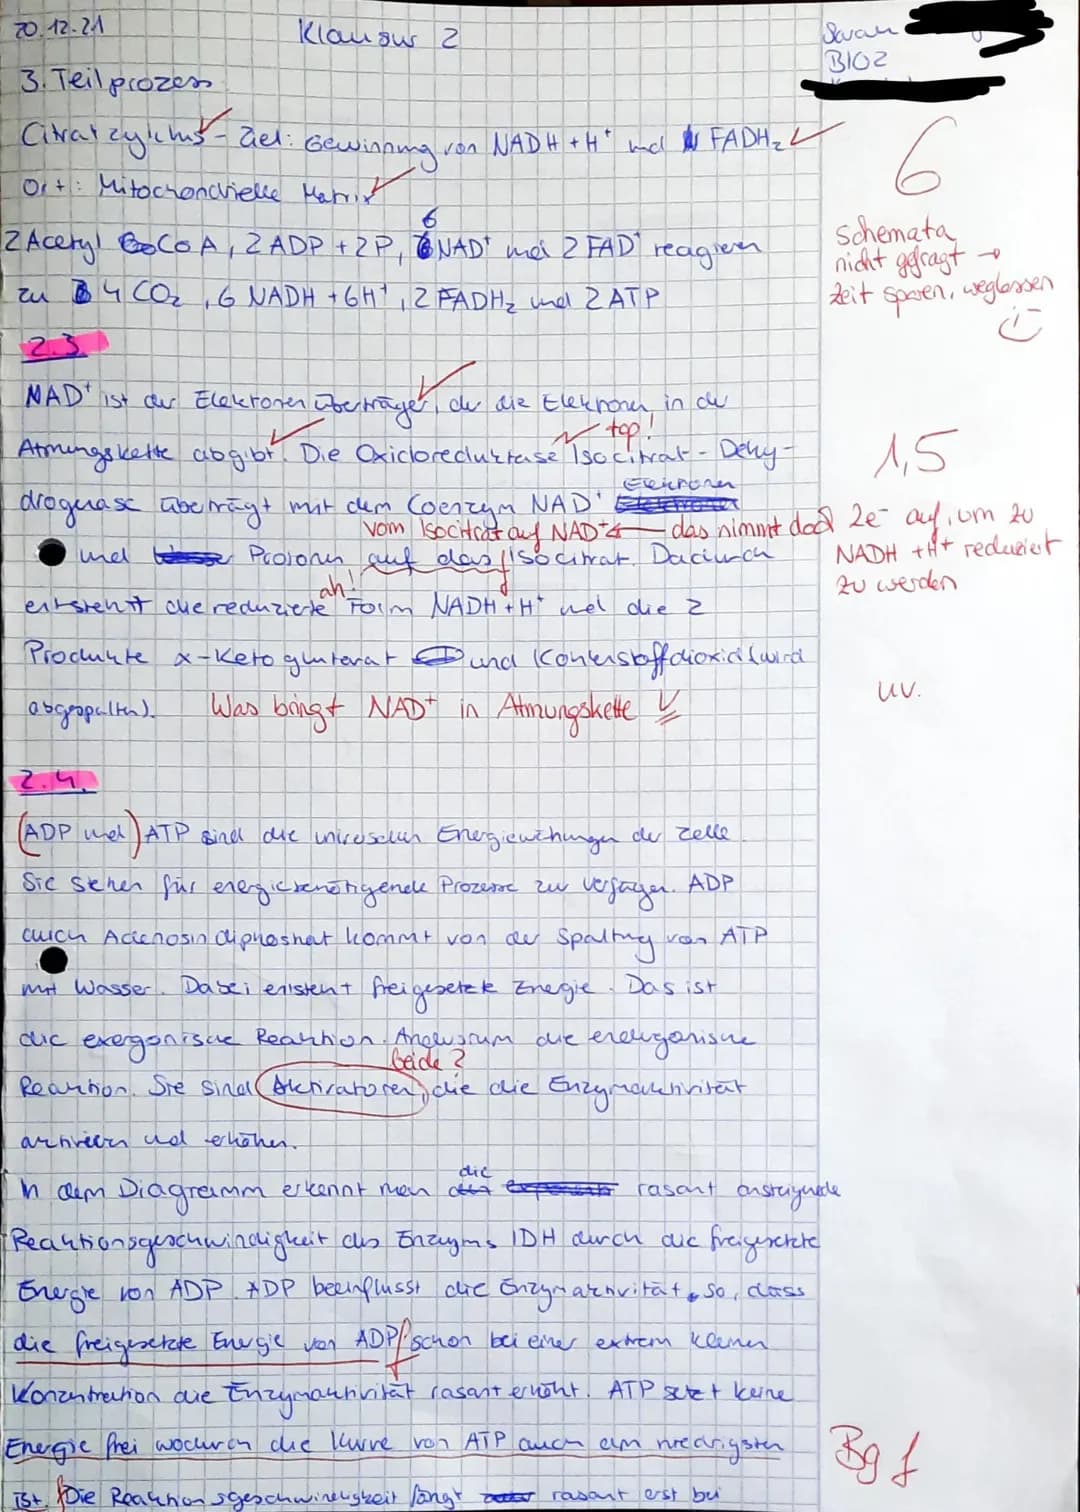 20.12.21
Klausur 2
Sarah
BIO2
3. Teilprozess
Citratzyklus - Ziel: Gewinnung von NADH + H⁺ und FADH₂
6
Ort: Mitochondrielle Matrix
6
2 Acetyl CoA, 2 ADP + 2P, 6 NAD⁺ und 2 FAD⁺ reagieren
zu 4 CO₂, 6 NADH + 6H⁺, 2 FADH₂ und 2 ATP
schemata
nicht gefragt →
Zeit sparen, weglassen
2.3.
NAD⁺ ist der Elektronenüberträger, der die Elektronen in der
top!
Atmungskette abgibt. Die Oxidoreduktase Isocitrat-Dehy-
1,5
Elektronen
drogenase überträgt mit dem Coenzym NAD⁺
vom Isocitrat auf NAD⁺ ← das nimmt doch 2e⁻ auf, um zu
NADH + H⁺ reduziert
zu werden
und Protonen auf das Isocitrat. Dadurch
ah!
entsteht die reduzierte Form NADH + H⁺ und die 2
Produkte α-Ketogluterat und Kohlenstoffdioxid (wird
abgespalten).
Was bringt NAD⁺ in Atmungskette
uv.
2.4.
(ADP und) ATP sind die universellen Energiewährungen der Zelle.
Sie stehen für energiebenötigende Prozesse zur Verfügung. ADP
auch Adenosindiphosphat kommt von der Spaltung von ATP
mit Wasser. Dabei entsteht freigesetzte Energie. Das ist
die exergonische Reaktion. Andersrum die endergonische
beide?
Reaktion. Sie sind Aktivatoren, die die Enzymaktivität
aktivieren und erhöhen.
die
In dem Diagramm erkennt man rasant ansteigende
Reaktionsgeschwindigkeit des Enzyms IDH durch die freigesetzte
Energie von ADP. ADP beeinflusst die Enzymaktivität so, dass
die freigesetzte Energie von ADP schon bei einer extrem kleinen
Konzentration die Enzymaktivität rasant erhöht. ATP setzt keine
Energie frei wodurch die Kurve von ATP auch am niedrigsten
Bg f
ist. Die Reaktionsgeschwindigkeit fängt rasant erst bei